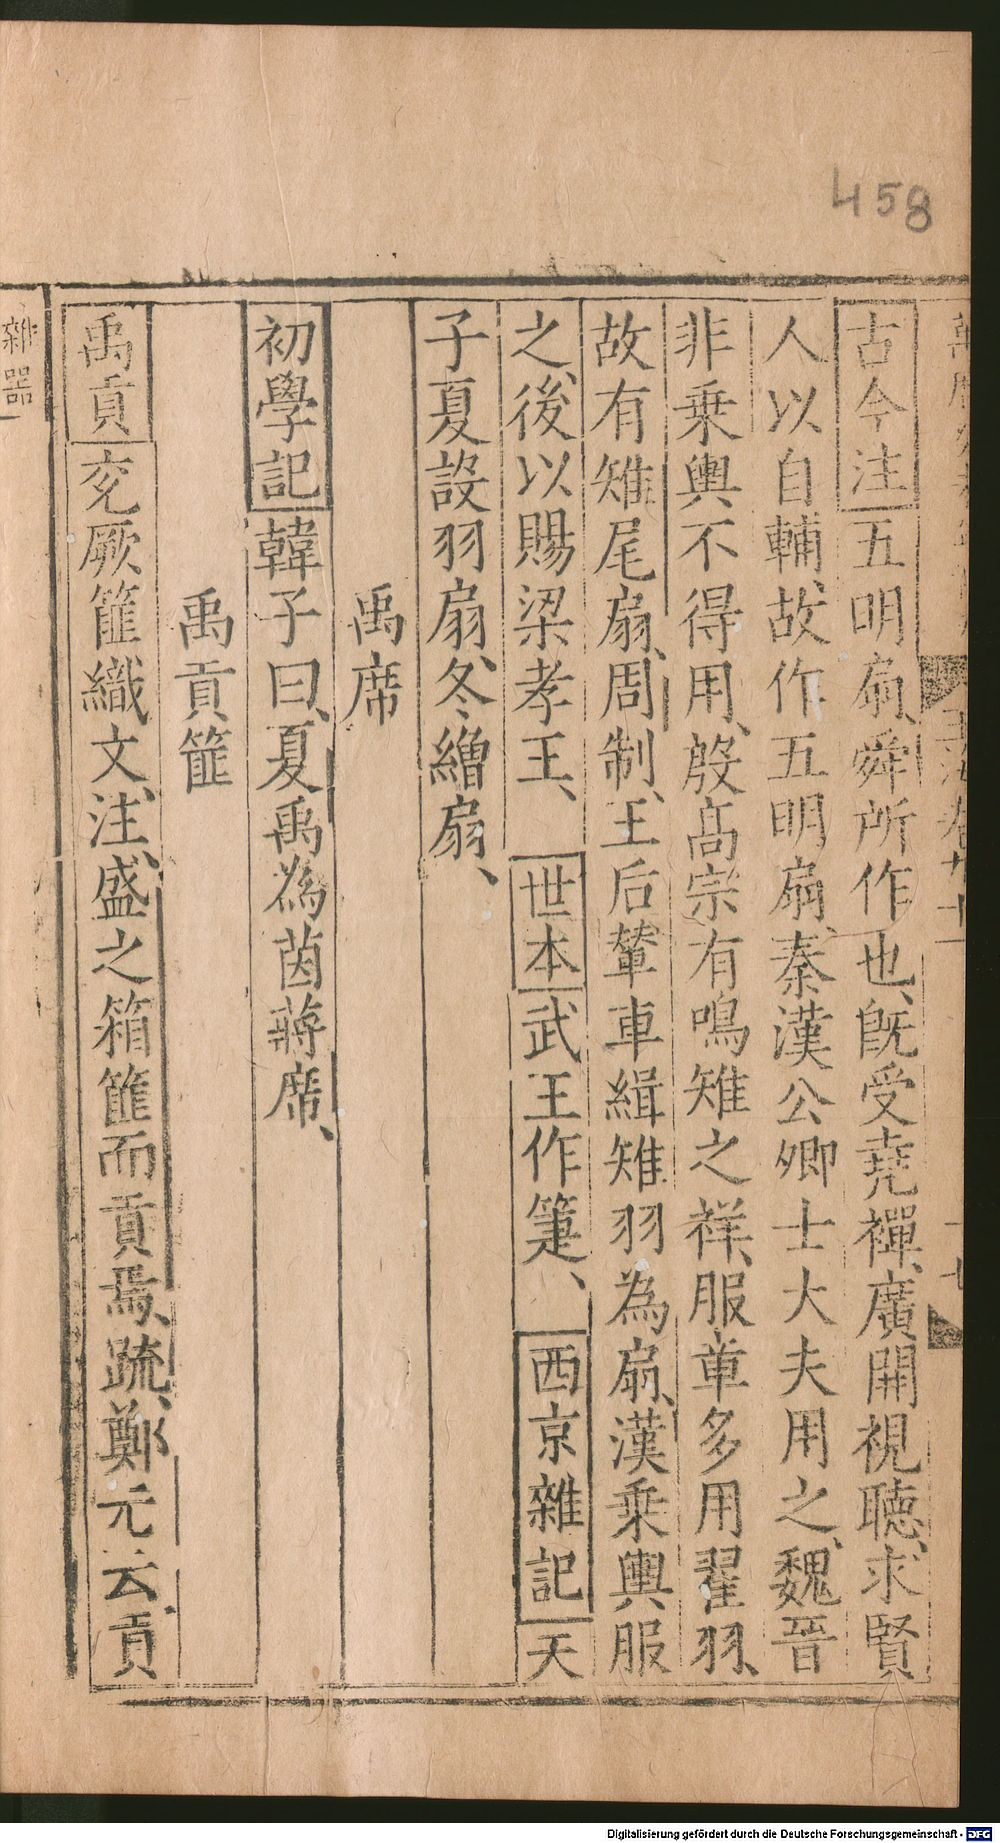 458
古今注五明扇、舜所作也、旣受堯禪、廣開視聽、求賢
人以自輔、故作五明扇、秦漢公卿士大夫用之、魏晉
非乗輿不得用、殷高宗有鳴雉之祥、服章多用翟羽、
故有雉尾扇、周制、王后輦車緝雉羽為扇、漢乗輿服
之、後以賜梁孝王、世本武王作箑、西京雜記天
子夏設羽扇、冬繒扇、
禹席
初學記韓子曰、夏禹為茵蔣席、
禹貢篚
禹貢兖厥篚織文、注、盛之箱篚而貢焉、疏、鄭元云貢
雜器
Digitalisierung gefördert durch die Deutsche Forschungsgemeinschaft - DFG